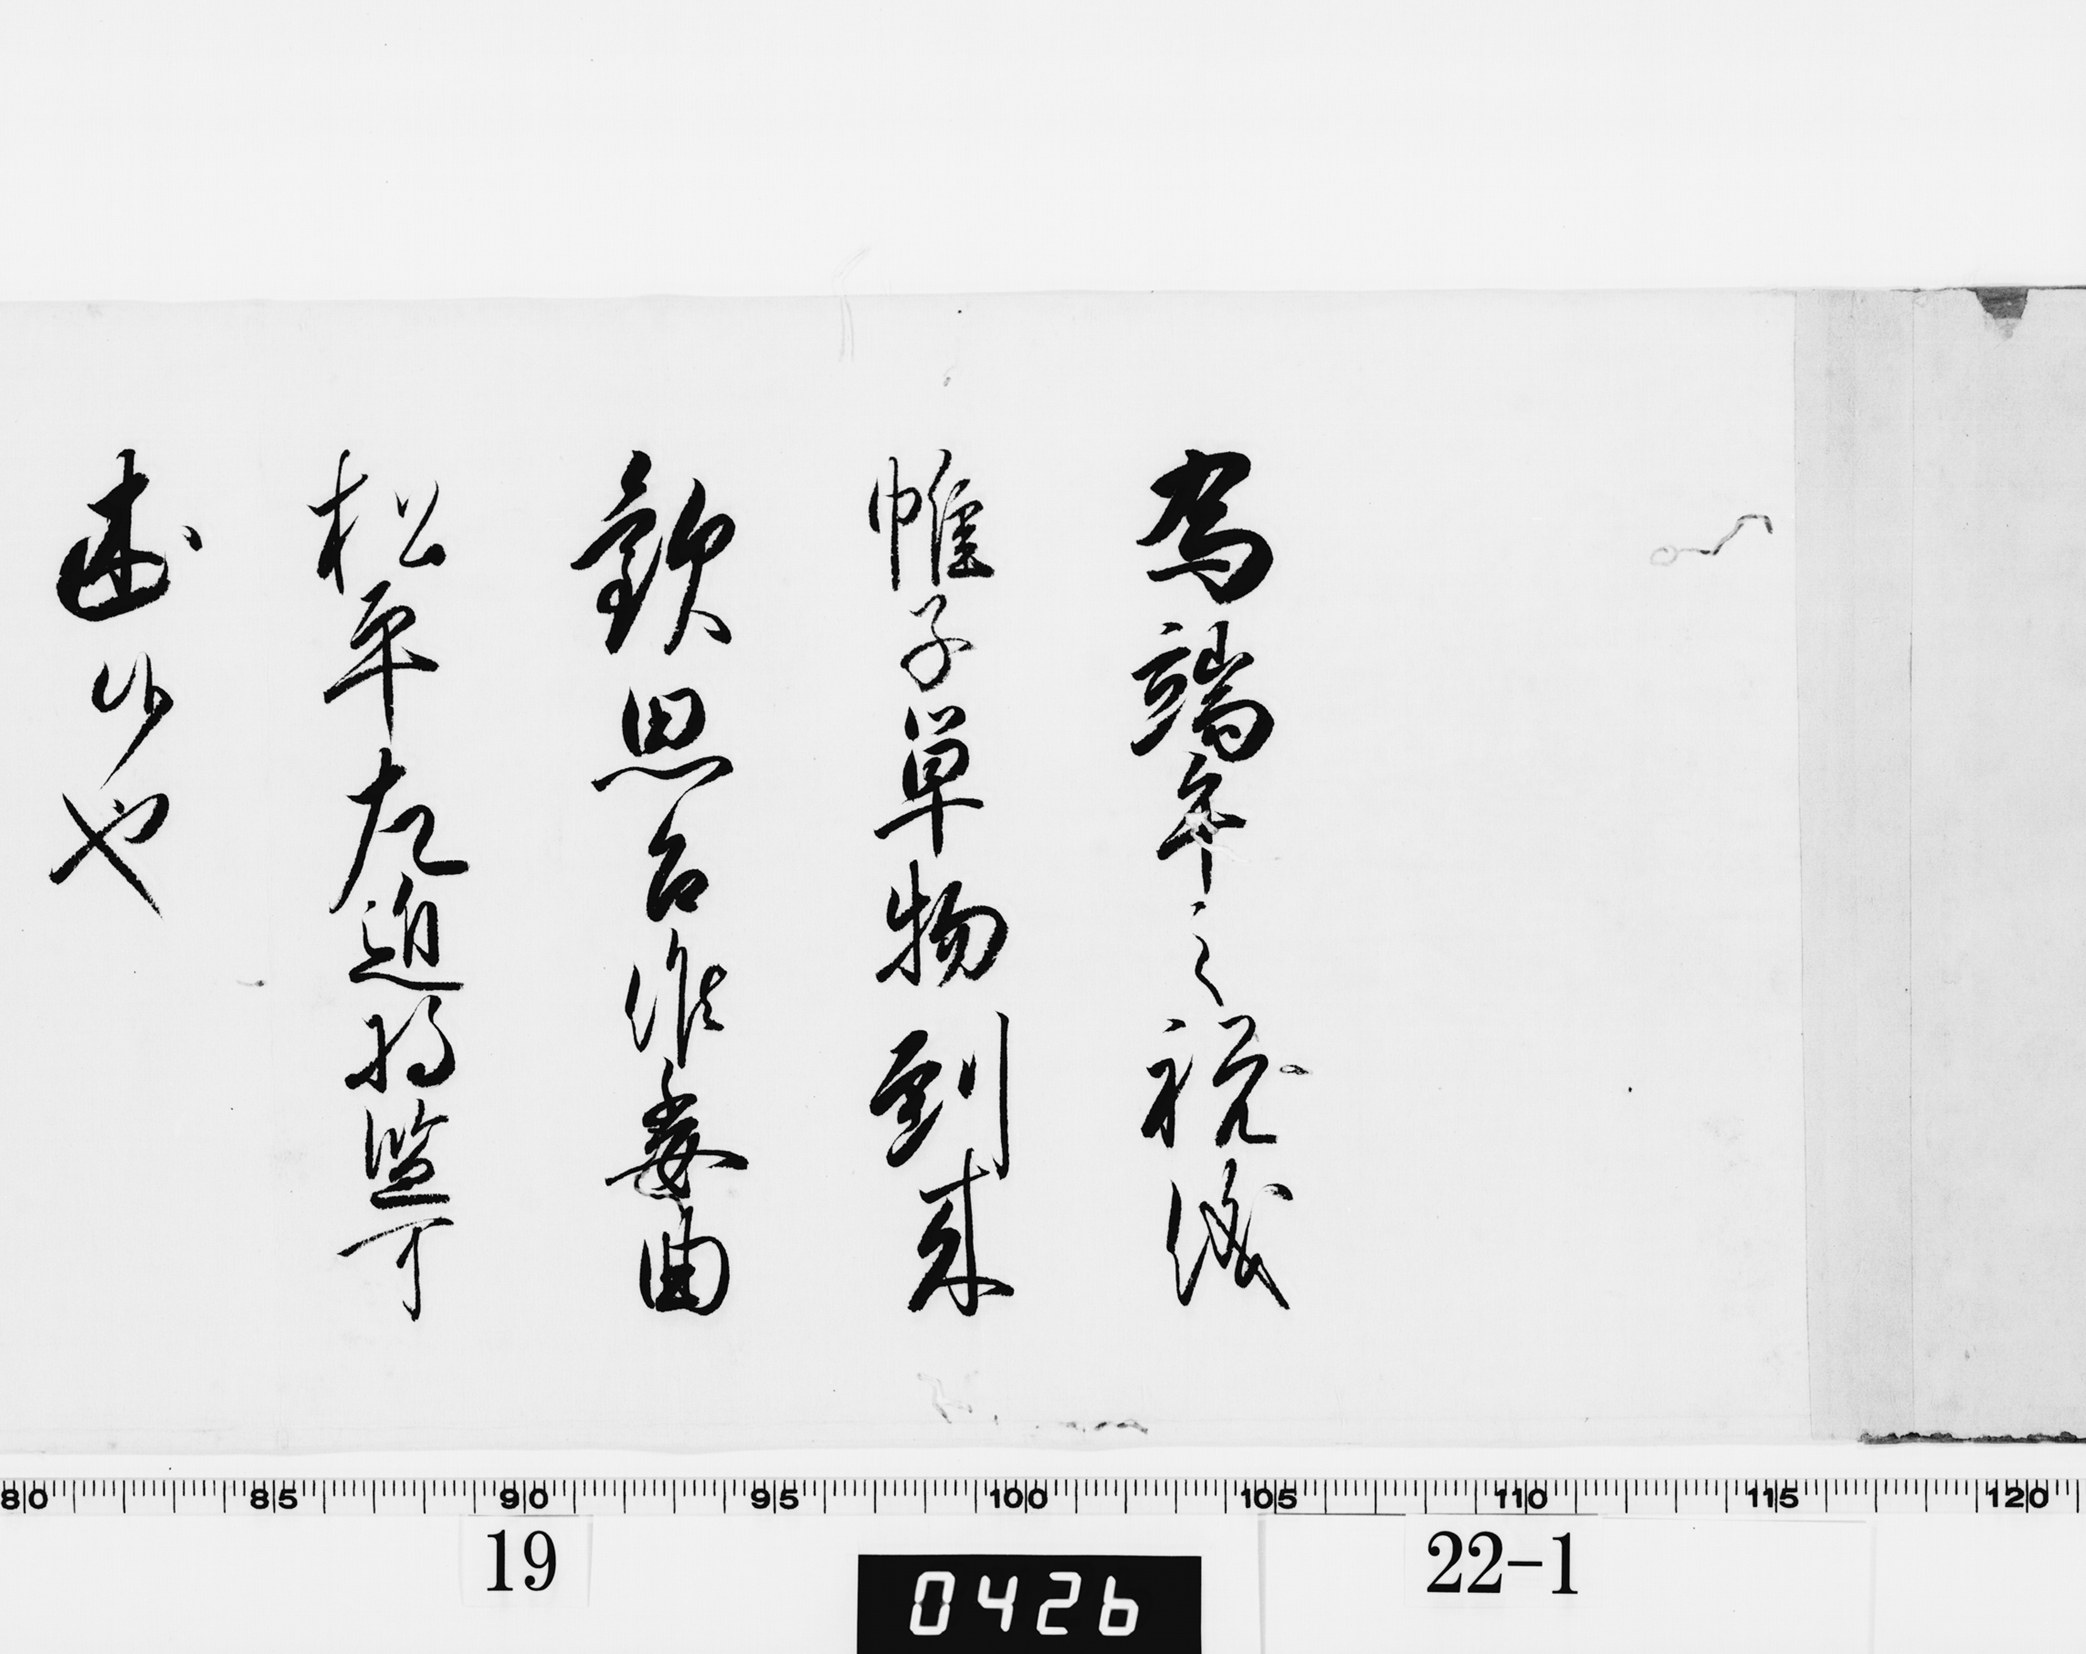 為端午之祝儀
帷子単物到来
歓思召候委曲
松平左近将監可
述候也
80 85 90 95 100 105 110 115 120
19
0426
22-1